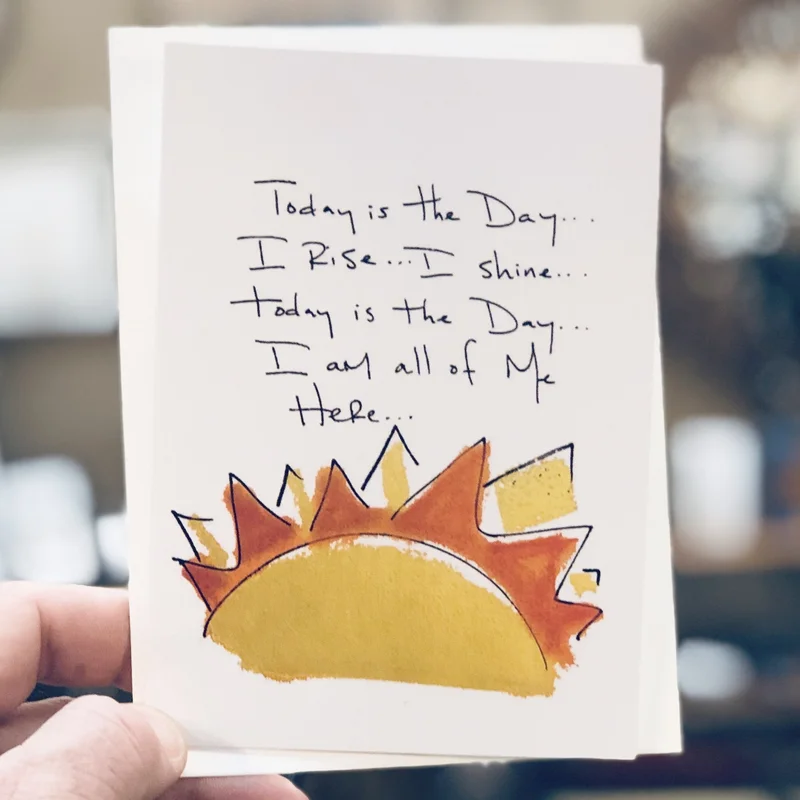 Today is the Day...
I Rise...I shine...
today is the Day...
I am all of Me
Here...